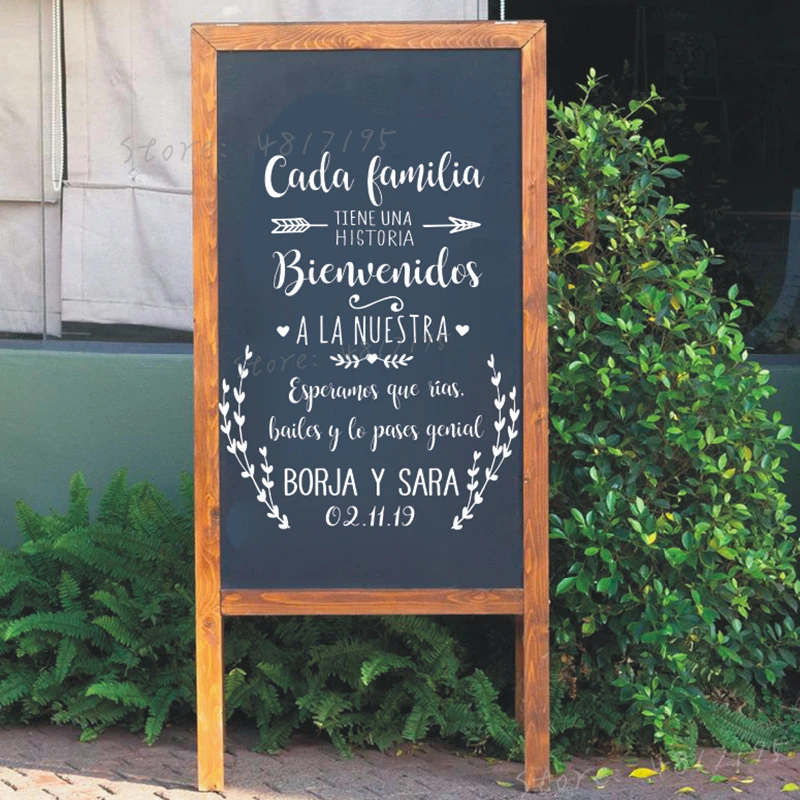 Store: 4817195
Cada familia
TIENE UNA
HISTORIA
Bienvenidos
A LA NUESTRA
Store: 4817195
Esperamos que rías,
bailes y lo pases genial
BORJA Y SARA
02.11.19
Store: 4817195